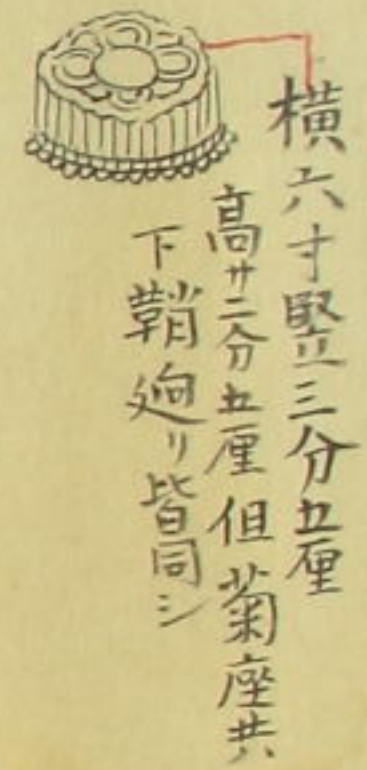 横六寸竪三分五厘
高サ二分五厘但菊座共
下鞘廻リ皆同シ